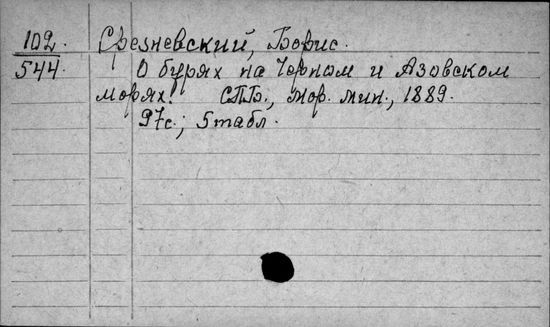 102.
544.
Срезневский, Борис.
О бурях на Черном и Азовском
морях. СПБ., мор. мин., 1889.
97с.; 5 табл.